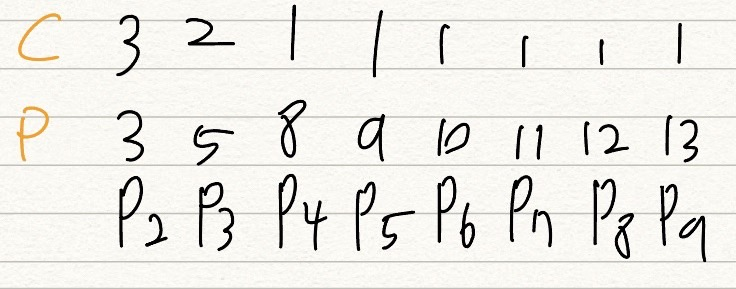 C 3 2 1 1 1 1 1 1
P 3 5 8 9 10 11 12 13
P2 P3 P4 P5 P6 P7 P8 P9